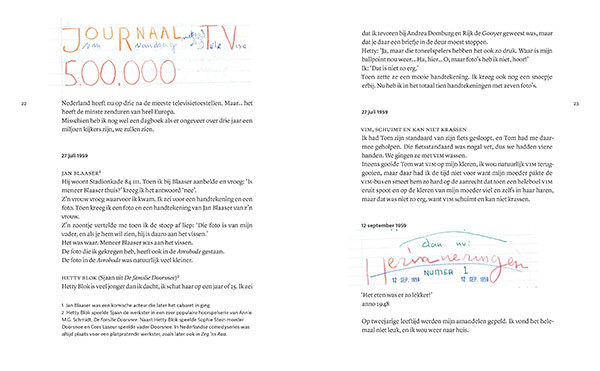 JOURNAAL T.V.
500.000
22
Nederland heeft nu op drie na de meeste televisietoestellen. Maar... het
heeft de minste zenduren van heel Europa.
Misschien heb ik nog wel een dagboek als er ongeveer over drie jaar een
miljoen kijkers zijn, we zullen zien.
27 juli 1959
JAN BLAASER¹
Hij woont Stadionkade 84 III. Toen ik bij Blaaser aanbelde en vroeg: 'Is
meneer Blaaser thuis?' kreeg ik het antwoord 'nee'.
Z'n vrouw vroeg waarvoor ik kwam. Ik zei voor een handtekening en een
foto. Toen kreeg ik een foto en een handtekening van Jan Blaaser van z'n
vrouw.
Z'n zoontje vertelde me toen ik de stoep af liep: 'Die foto is van mijn
vader, en als je hem wil zien, hij is daaro aan het vissen.'
Het was waar. Meneer Blaaser was aan het vissen.
De foto die ik gekregen heb, heeft ook in de Avrobode gestaan.
De foto in de Avrobode was natuurlijk veel kleiner.
HETTY BLOK (Sjaan uit De familie Doorsnee)²
Hetty Blok is veel jonger dan ik dacht, ik schat haar op een jaar of 25. Ik zei
1 Jan Blaaser was een komische acteur die later het cabaret in ging.
2 Hetty Blok speelde Sjaan de werkster in een zeer populaire hoorspelserie van Annie
M.G. Schmidt, De familie Doorsnee. Naast Hetty Blok speelde Sophie Stein moeder
Doorsnee en Cees Laseur speelde vader Doorsnee. In Nederlandse comedyseries was
altijd plaats voor een platpratende werkster, zoals later ook in Zeg 'ns Aaa.
dat ik tevoren bij Andrea Domburg en Rijk de Gooyer geweest was, maar
dat je daar een briefje in de deur moest stoppen.
Hetty: 'Ja, maar die toneelspelers hebben het ook zo druk. Waar is mijn
ballpoint nou weer... Ha, hier... O, maar foto's heb ik niet, hoor!'
Ik: 'Dat is niet zo erg.'
Toen zette ze een mooie handtekening. Ik kreeg ook nog een snoepje
erbij. Nu heb ik in het totaal tien handtekeningen met zeven foto's.
23
27 juli 1959
VIM, SCHUIMT EN KAN NIET KRASSEN
Ik had Tom zijn standaard van zijn fiets gesloopt, en Tom had me daar-
mee geholpen. Die fietsstandaard was nogal vet, dus we hadden vieze
handen. We gingen ze met VIM wassen.
Ineens gooide Tom wat VIM op mijn kleren, ik wou natuurlijk VIM terug-
gooien, maar daar had ik de tijd niet voor want mijn moeder pakte de
VIM-bus en smeet hem zo hard op de aanrecht dat toen een heleboel VIM
eruit spoot en op de kleren van mijn moeder viel en zelfs in haar haren,
maar dat was niet zo erg, want VIM schuimt en kan niet krassen.
12 september 1959
dan nu:
Herinneringen
NUMER 1
12 SEP. 1959 12 SEP. 1959
'Het eten was er zo lekker!'
anno 1948
Op tweejarige leeftijd werden mijn amandelen gepeld. Ik vond het hele-
maal niet leuk, en ik wou weer naar huis.